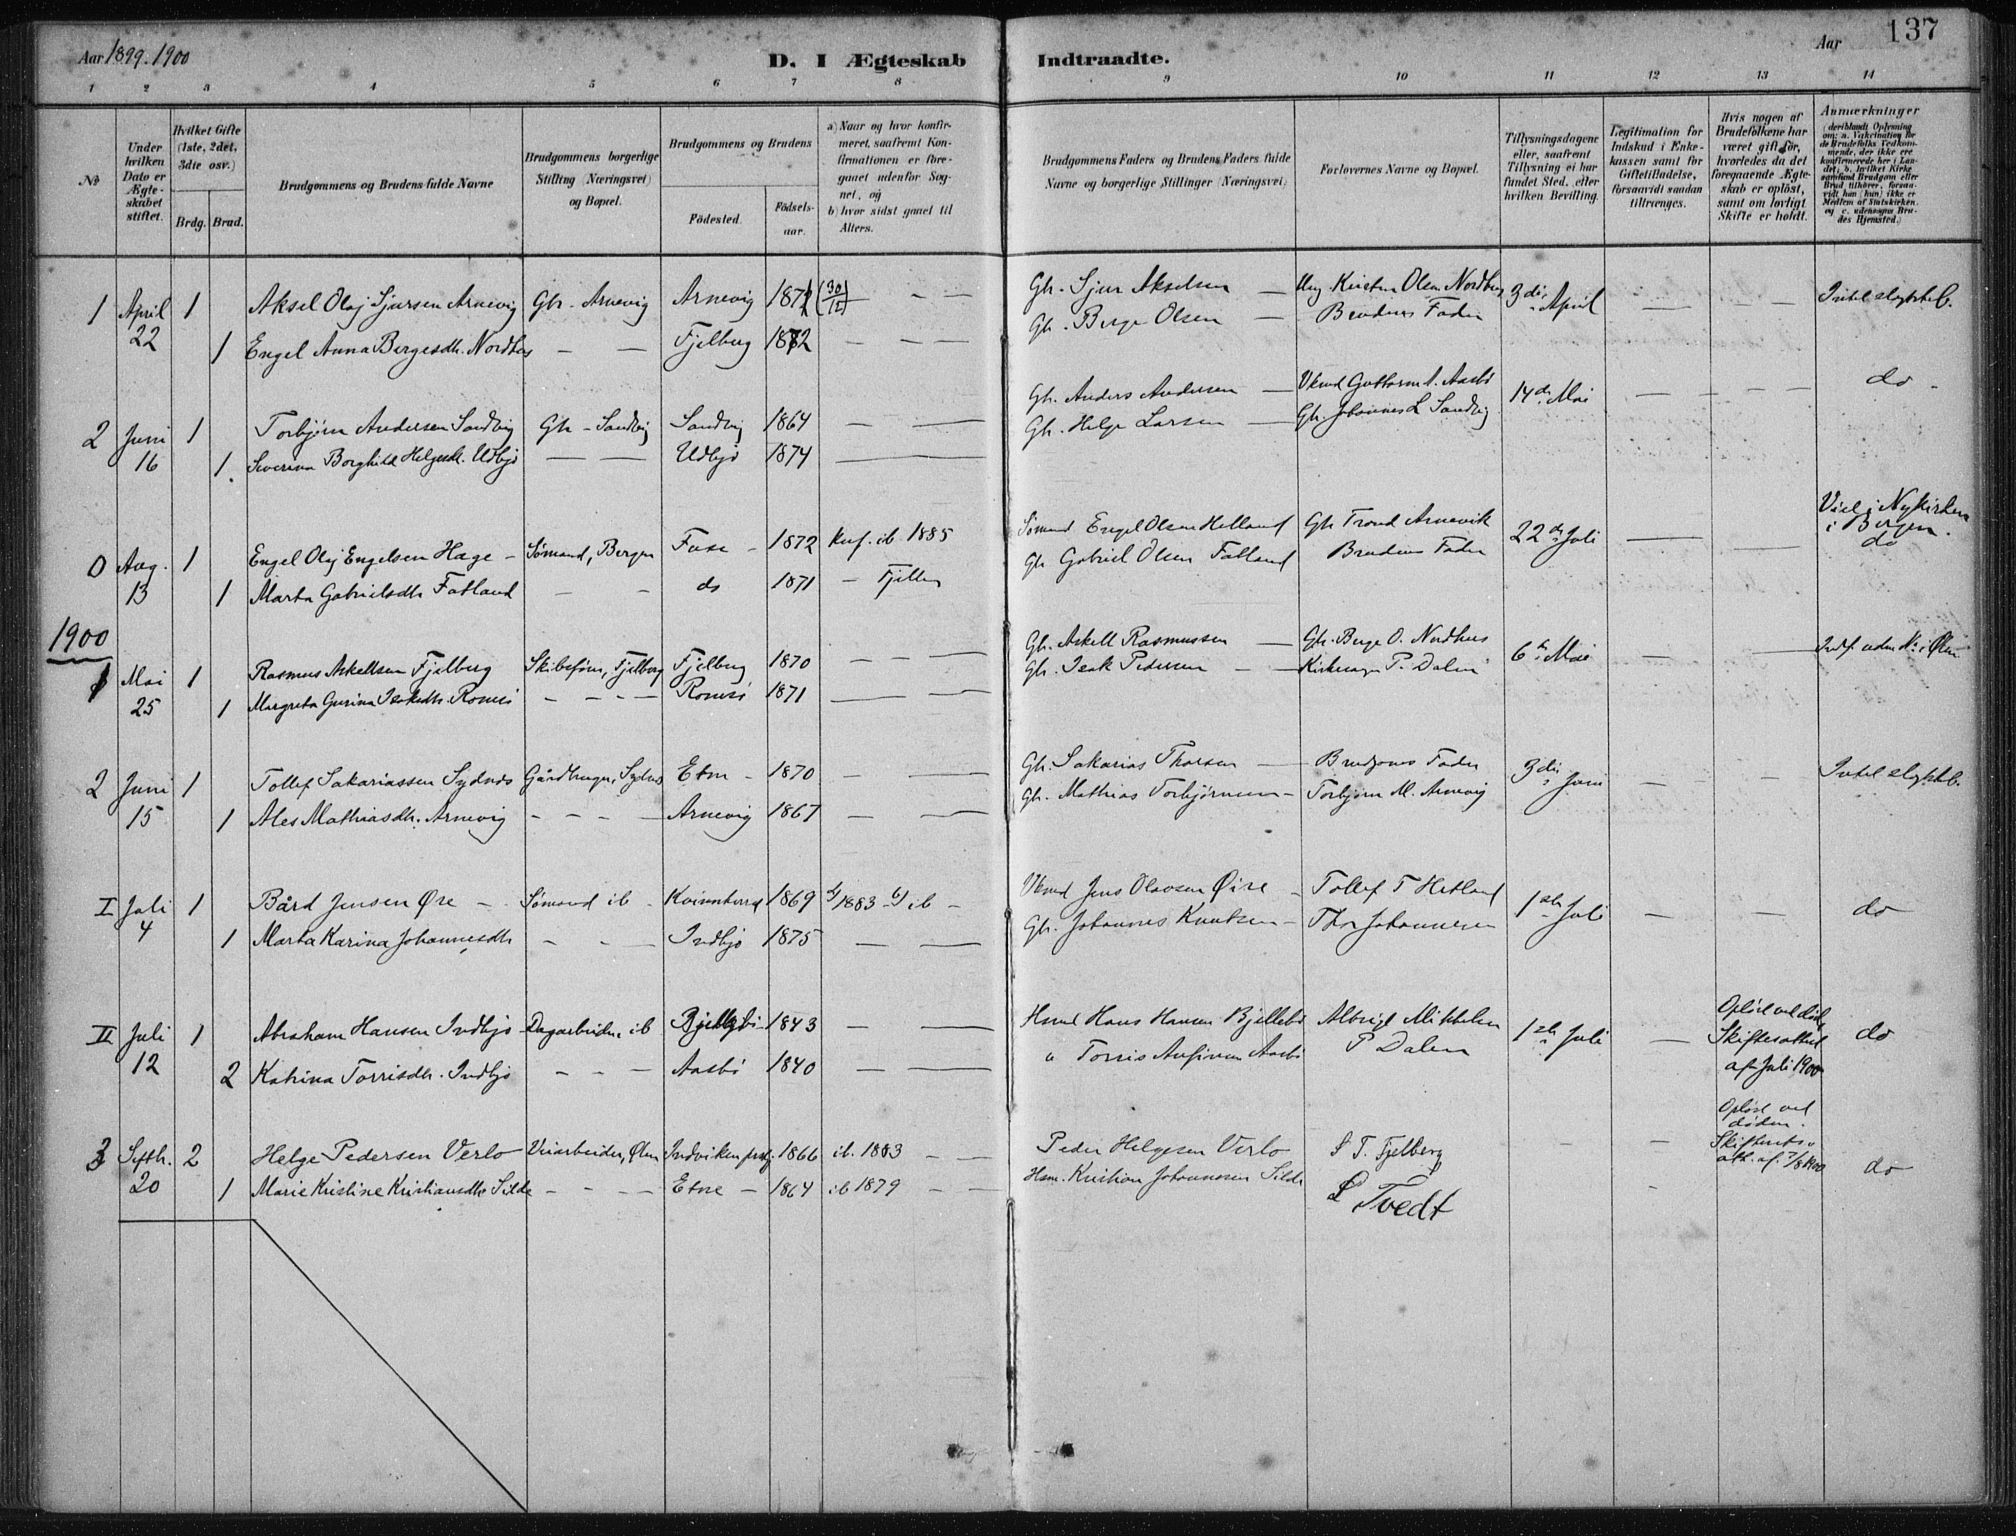 Aar 1899. 1900
D. I Ægteskab Indtraadte.
Aar
137
1 2 3 4 5 6 7 8 9 10 11 12 13 14
№
Under hvilken Dato er Ægteskabet stiftet.
Hvilket Gifte (1ste, 2det, 3die osv.)
Brdg. Brud.
Brudgommens og Brudens fulde Navne
Brudgommens borgerlige Stilling (Næringsvei) og Bopæl.
Brudgommens og Brudens
Födested.
Födselsaar.
a) Naar og hvor konfirmeret, saafremt Konfirmationen er foregaaet udenfor Sognet, og
b) hvor sidst gaaet til Alters.
Brudgommens Faders og Brudens Faders fulde Navne og borgerlige Stillinger (Næringsvei)
Forlovernes Navne og Bopæl.
Tillysningsdagene eller, saafremt Tillysning ei har fundet Sted, efter hvilken Bevilling.
Legitimation for Indskud i Enkekassen samt for Giftetilladelse, forsaavidt saadan tiltrænges.
Hvis nogen af Brudefolkene har været gift för, hvorledes da det foregaaende Ægteskab er oplöst, samt om lovligt Skifte er holdt.
Anmærkninger
(deriblandt Oplysning om: a. Vakcination for de Brudefolks Vedkommende, der ikke ere konfirmerede her i Landet, b. hvilket Kirkesamfund Brudgom eller Brud tilhører, forsaavidt han (hun) ikke er Medlem af Statskirken, og c. udensogns Brudes Hjemsted.)
1 April 1 Aksel Olaj Sjursen Arnevig Gbr. Arnevig Arnevig 1871 (30/12) — — Gbr. Sjur Akselsen — Ung. Kirsten Olsen Nordhus 3die April — —
22 1 Engel Anna Bergesdtr. Nordhus — — Fjelberg 1872 — — Gbr. Berge Olsen — Brudens Fader
2 Juni 1 Torbjørn Andersen Sandvig Gbr. Sandvig Sandvig 1864 — — Gbr. Anders Andersen — Guttorm A. Aasbö 14de Mai — — do
16 1. Severina Borghild Helgesdr. Udbjö — — Udbjö 1874 — Gbr. Helge Larsen — Gbr. Johannes L Sandvig
0 Aug. 1 Engel Olaj Engelsen Hage — Sömand, Bergen Fuse — 1872 Knf. ib. 1885 Sömand Engel Olsen Helland Gbr Trond Arnevik 22de Juli — — Viet i Nykirken i Bergen.
13 1 Marta Gabrielsdtr Fatland — — do 1871 — Gbr Gabriel Olsen Fatland Brudens Fader do
1900
1 Mai 1 Rasmus Askellsen Fjelberg Skibsförer, Fjelberg Fjelberg 1870 — — Gbr. Askell Rasmussen — Gbr. Berge O. Nordhus 6te Mai — —
25 1 Margreta Gurina Isaksdtr. Romsö — — — Romsö 1871 — Gbr. Isak Pedersen — Kirkesanger P. Dalen
2 Juni 1 Tollef Sakariassen Sydnes Gårdbruger, Sydnes Etne — 1870 — — Gbr. Sakarias Thorsen — Brudgoms Fader 3die Juni — —
15 1 Ales Mathiasdtr. Arnevig — — — Arnevig 1867 — — Gbr. Mathias Torbjörnsen — Torbjörn M. Arnevig
I Juli 1 Bård Jensen Øre — Sömand ib — Kvinnherred 1869 a) 1883 b) ib — Jens Olavsen Øire — Tollef T Hetland 1ste Juli — — do
4 1 Marta Karina Johannesdtr — — — Indbjo 1875 — — Gbr. Johannes Knutsen — Thor Johannesen
II Juli 1 Abraham Hansen Indbjo Dagarbeider ib 1843 — — Hmd Hans Hansen Albrigt Mikkelsen 1ste Juli — Opløst ved död, Skifteattest af Juli 1900 do
12 2 Katrina Torrisdtr. Indbjo — — — Aasbö 1840 — — " Torris Aasbö P Dalen
3 Septb. 2 Helge Pedersen Verlo Veiarbeider, Ølen Indviken prstg. 1866 ib. 1883 — — Peder Helgesen Verlo S T. Fjelberg — — Opløst ved döden. Skifterets att. af 7/8 1900 do
20 1 Marie Kristine Kristiansdtr Silde — — — Etne — 1864 ib 1879 — — Hsm. Kristian Johannesen Silde L Tvedt —